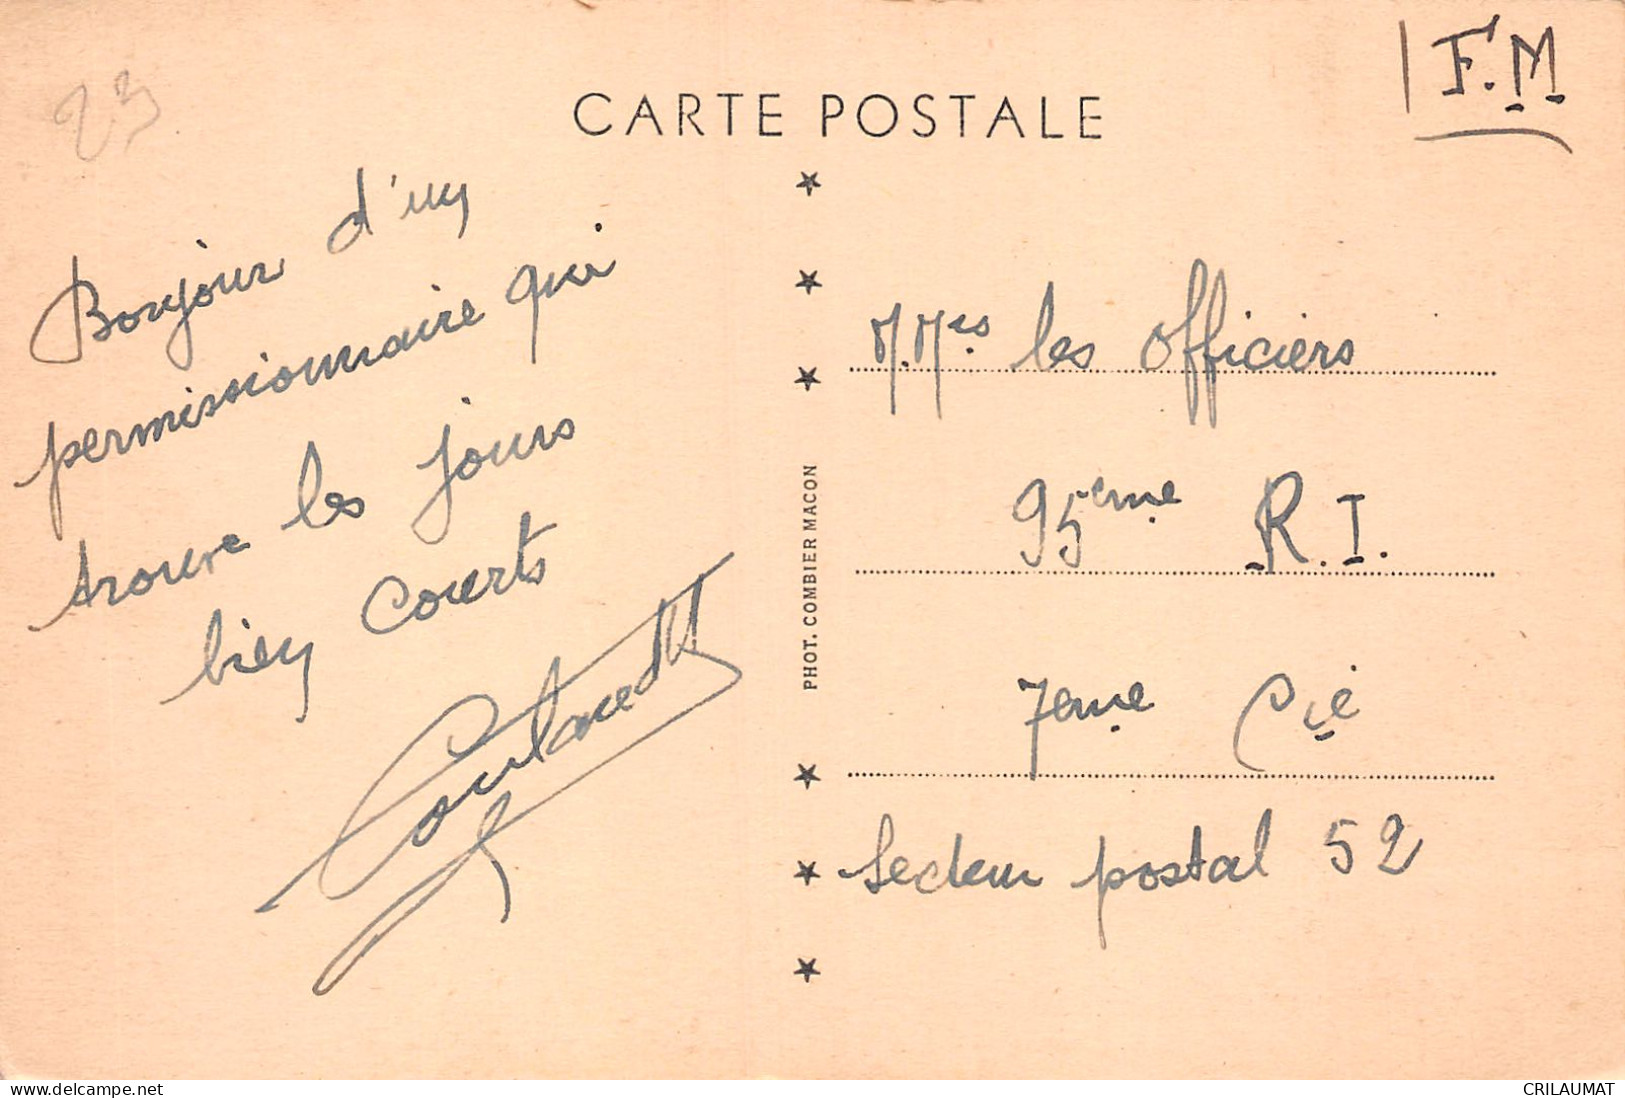 F.M
23
CARTE POSTALE
Bonjour d'un
permissionnaire qui
trouve les jours
bien courts
PHOT. COMBIER MACON
M.Mrs les Officiers
95ème R.I.
7eme Cie
Secteur postal 52
www.delcampe.net
CRILAUMAT